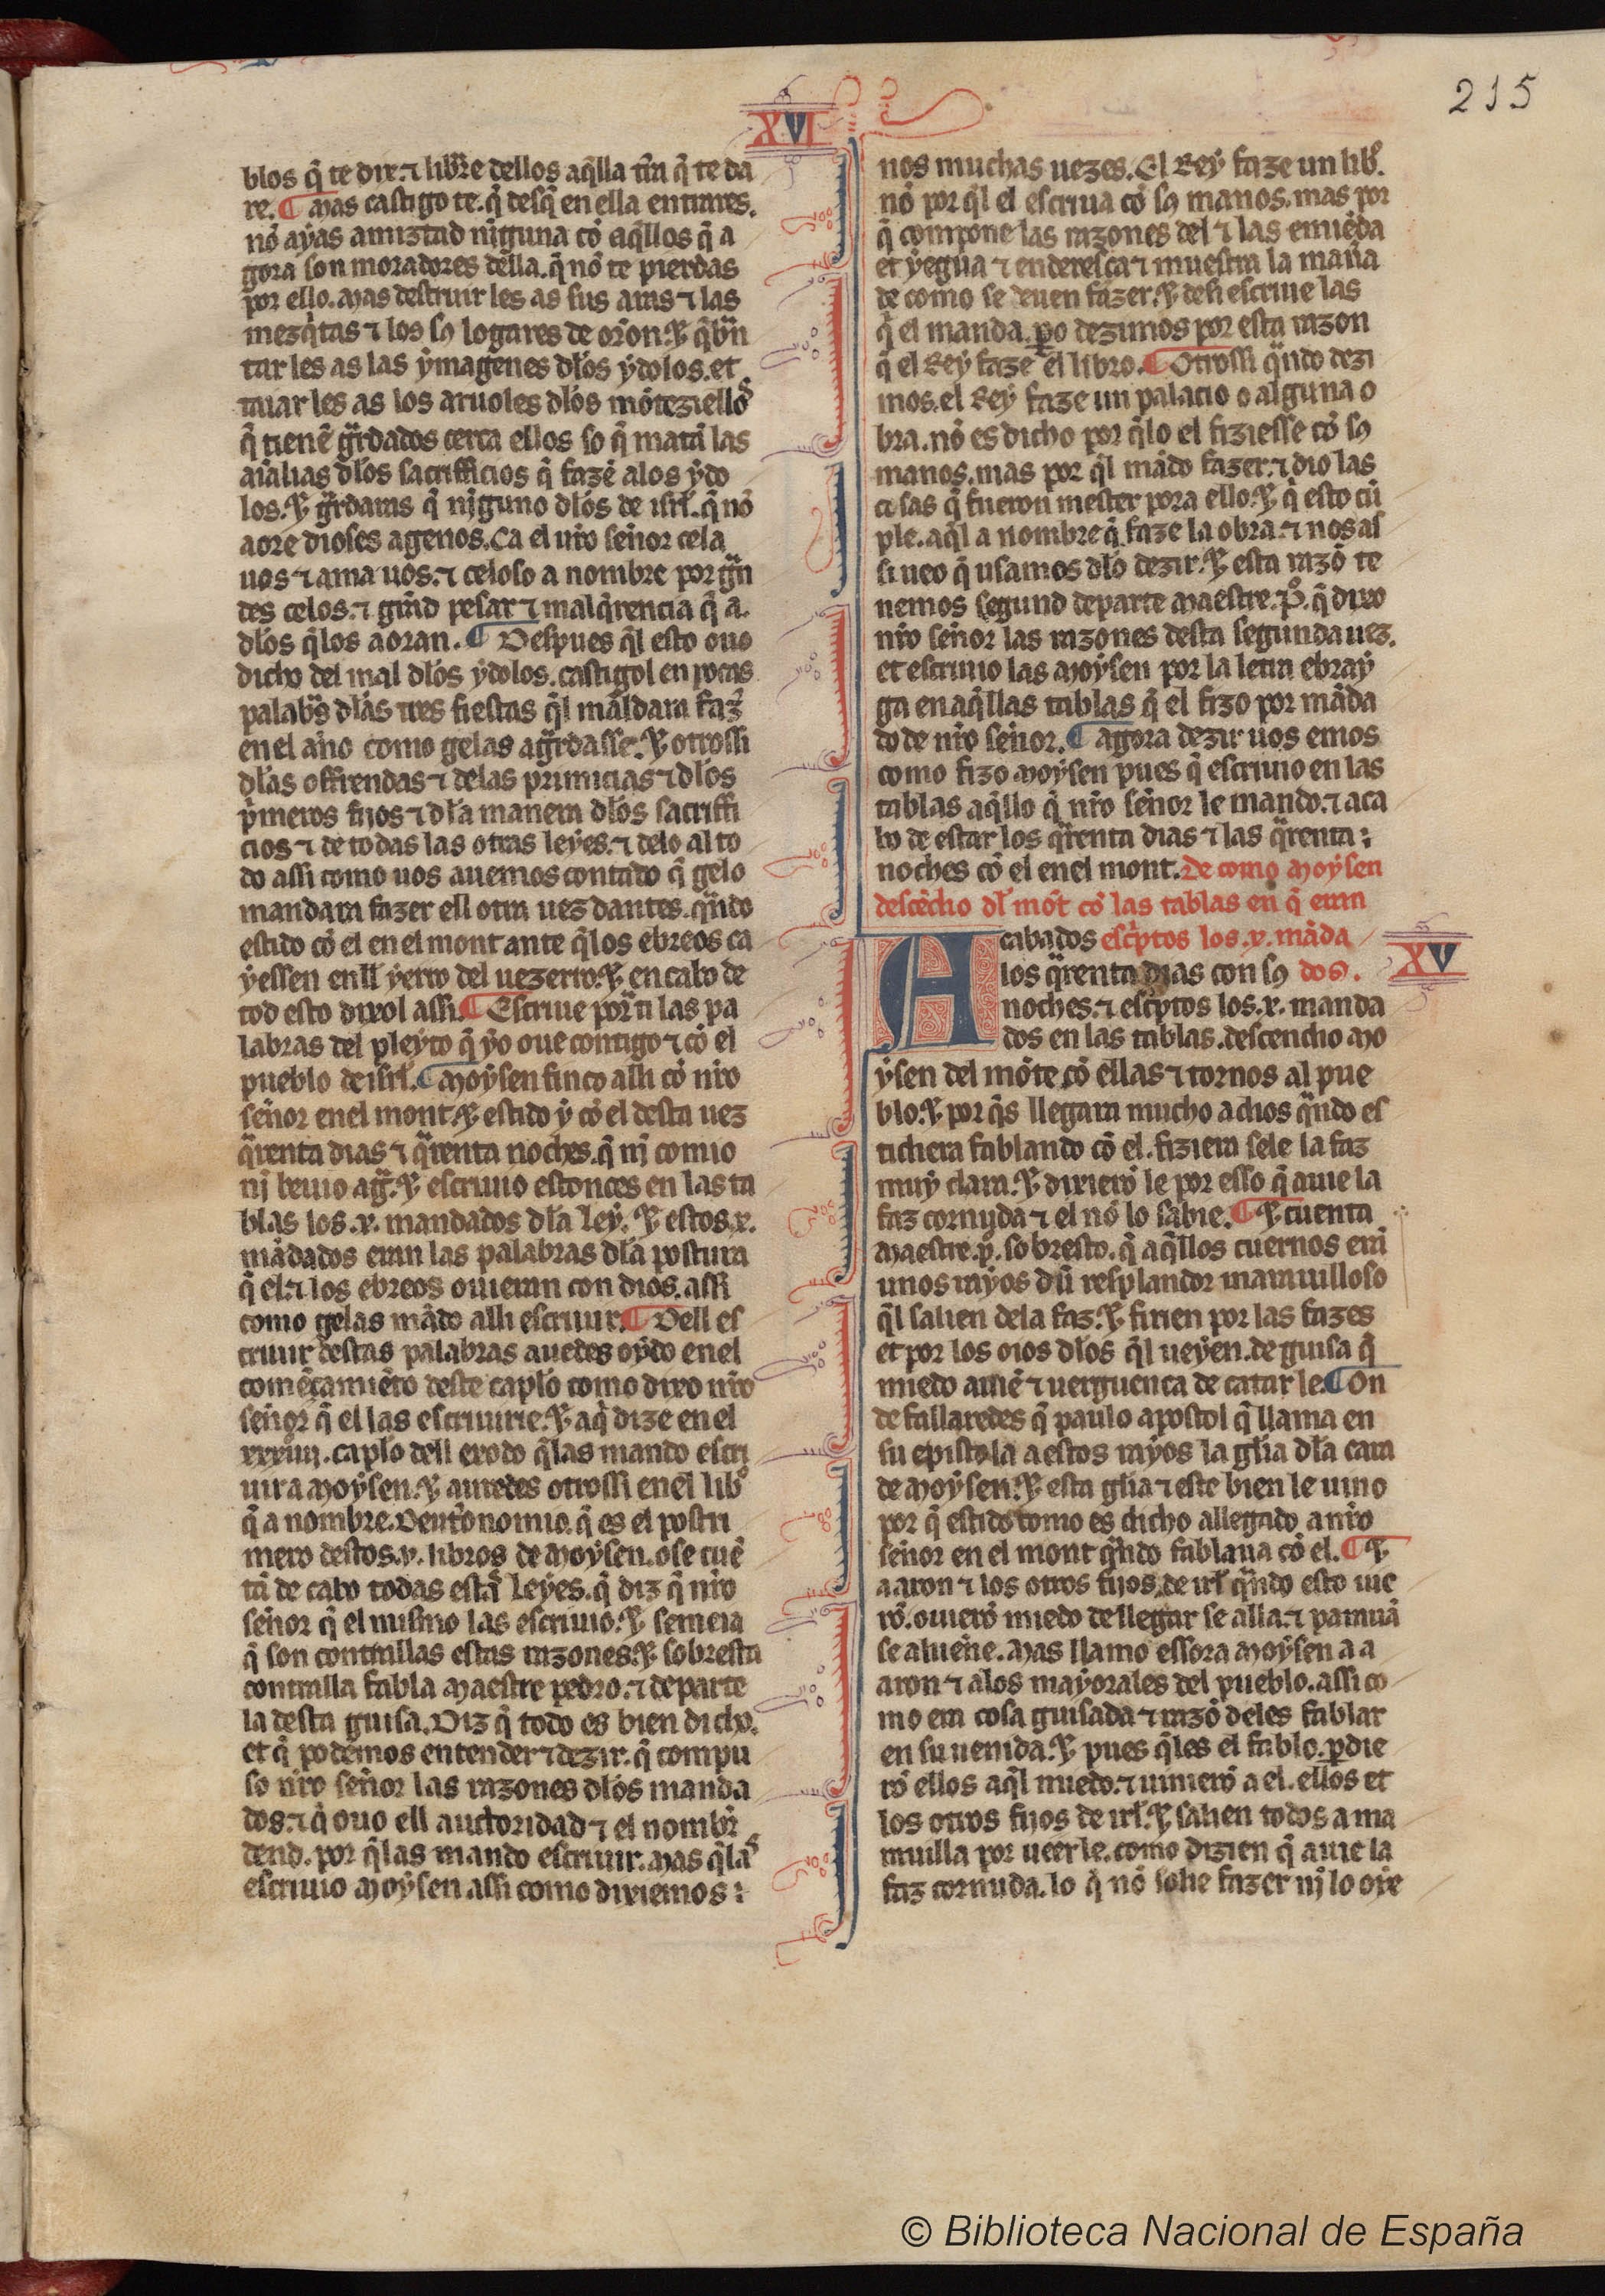 215
XVI
blos q̃ te dix. ⁊ librre dellos aq̃lla tr̃ra q̃ te da
re. ¶ Mas castigo te. q̃ desq̃ en ella entrares.
nõ ayas amiztad ninguna cõ aq̃llos q̃ a
gora son moradores della. q̃ nõ te pierdas
por ello. Mas destruir les as sus aras ⁊ las
mezq̃tas ⁊ los sꝯ logares de oriõn. ⁊ q̃brã
tar les as las ymagenes dl̃os ydolos. et
taiar les as los aruoles dl̃os mõteziellos
q̃ tienẽ gr̃dados cerca ellos so q̃ matã las
aĩalias dl̃os sacrifficios q̃ fazẽ alos ydo
los. ⁊ gr̃daras q̃ nĩguno dl̃os de isrl̃. q̃ nõ
aore dioses agenos. Ca el nr̃o señor cela
uos ⁊ ama uos. ⁊ celoso a nombre por grãn
des celos. ⁊ grãnd pesar ⁊ malq̃rencia q̃ a.
dl̃os q̃los aoran. ¶ Despues q̃l esto ouo
dicho del mal dl̃os ydolos. castigol en pocas
palabr̃s dl̃as tres fiestas q̃l mãdara faz̃
en el año como gelas agr̃dasse. ⁊ otrossi
dl̃as offrendas ⁊ delas primicias ⁊ dl̃os
p̃meros fijos ⁊ dl̃a manera dl̃os sacriffi
cios ⁊ de todas las otras leyes. ⁊ delo al to
do assi como uos auemos contado q̃ gelo
mandara fazer ell otra uez dantes. q̃ndo
estido cõ el en el mont ante q̃los ebreos ca
yessen enll yerro del uezerro. ⁊ en cabo de
tod esto dixol assi. ¶ Escriue porᵃ ti las pa
labras del pleyto q̃ yo oue contigo ⁊ cõ el
pueblo de isrl̃. ¶ Moysen finco alli cõ nr̃o
señor en el mont. ⁊ estido y cõ el desta uez
q̃renta dias ⁊ q̃renta noches. q̃ nj comio
nj beuio agᵃ. ⁊ escriuio estonces en las ta
blas los .x. mandados dl̃a ley. ⁊ estos .x.
mãdados eran las palabras dl̃a postura
q̃ el. ⁊ los ebreos ouieran con dios. assi
como gelas mãdo alli escriuir. ¶ Dell es
criuir destas palabras auedes oydo en el
comẽçamiẽto deste capl̃o como dixo nr̃o
señor q̃ el las escriuirie. ⁊ aq̃ dize en el
xxxiiij. capl̃o dell exodo q̃las mando escri
uir a Moysen. ⁊ auredes otrossi en el libᵒ
q̃ a nombre. Deut̃onomio. q̃ es el postri
mero destos .v. libros de Moysen. o se cuẽ
tã de cabo todas estas leyes. q̃ diz q̃ nr̃o
señor q̃ el mismo las escriuio. ⁊ semeia
q̃ son contrallas estas razones. ⁊ sobresta
contralla fabla Maestre pedro. ⁊ departe
la desta guisa. Diz q̃ todo es bien dicho.
et q̃ podemos entender ⁊ dezir. q̃ compu
so nr̃o señor las razones dl̃os manda
dos. ⁊ q̃ ouo ell auctoridad ⁊ el nombr̃
dend. por q̃ las mando escriuir. Mas q̃las
escriuio Moysen assi como dixiemos :
nos muchas uezes. El Rey faze un libᵒ.
nõ por q̃l el escriua cõ sꝯ manos. mas por
q̃ compone las razones del ⁊ las emiẽda
et yegua ⁊ enderesça ⁊ muestra la manᵃa
de como se deuen fazer. ⁊ desi escriue las
q̃ el manda. p̱o dezimos por esta razon
q̃ el Rey faze el libro. ¶ Otrossi q̃ndo dezi
mos. el Rey faze un palacio o alguna o
bra. nõ es dicho por q̃lo el fiziesse cõ sꝯ
manos. mas por q̃l mãdo fazer. ⁊ dio las
cosas q̃ fueron mester pora ello. ⁊ q̃ esto cũ
ple. aq̃l a nombre q̃ faze la obra. ⁊ nos as
si ueo q̃ usamos dl̃o dezir. ⁊ esta razõ te
nemos segund departe Maestre .Pᵒ. q̃ dixo
nr̃o señor las razones desta segunda uez.
et escriuio las Moysen por la letra ebray
ga en aq̃llas tablas q̃ el fizo por mãda
do de nr̃o señor. ¶ Agora dezir uos emos
como fizo Moysen pues q̃ escriuio en las
tablas aq̃llo q̃ nr̃o señor le mando. ⁊ aca
bo de estar los q̃renta dias ⁊ las q̃renta :
noches cõ el en el mont. De como Moysen
descẽdio dl̃ mõt cõ las tablas en q̃ eran
Acabados esc̃ptos los .x. mãda
los q̃renta dias con sꝯ dos.
XV
noches. ⁊ esc̃ptos los .x. manda
dos en las tablas. descencho Mo
ysen del mõte cõ ellas ⁊ tornos al pue
blo. ⁊ por q̃s llegara mucho a dios q̃ndo es
tidiera fablando cõ el. fiziera sele la faz
muy clara. ⁊ dixierõ le por esso q̃ auie la
faz cornuda ⁊ el nõ lo sabie. ¶ ⁊ cuenta
Maestre .p̃. sobresto. q̃ aq̃llos cuernos erã
unos rayos dũ resplandor marauilloso
q̃l salien dela faz. ⁊ firien por las fazes
et por los oios dl̃os q̃l ueyen. de guisa q̃
miedo auiẽ ⁊ uerguença de catar le. ¶ On
de fallaredes q̃ paulo apostol q̃ llama en
su epistola a estos rayos la gl̃ia dl̃a cara
de Moysen. ⁊ esta gl̃ia ⁊ este bien le uino
por q̃ estido como es dicho allegado a nr̃o
señor en el mont q̃ndo fablaua cõ el. ¶ ⁊
aaron ⁊ los otros fijos de irl̃ q̃ndo esto uie
rõ. ouierõ miedo de llegar se alla. ⁊ parauã
se aluene. Mas llamo essora Moysen a a
aron ⁊ alos mayorales del pueblo. assi co
mo era cosa guisada ⁊ razõ deles fablar
en su uenida. ⁊ pues q̃les el fablo. p̱die
rõ ellos aq̃l miedo. ⁊ uinierõ a el. ellos et
los otros fijos de irl̃. ⁊ salien todos a ma
rauilla por ueerle. como dizien q̃ auie la
faz cornuda. lo q̃ nõ solie fazer nj lo oye
© Biblioteca Nacional de España